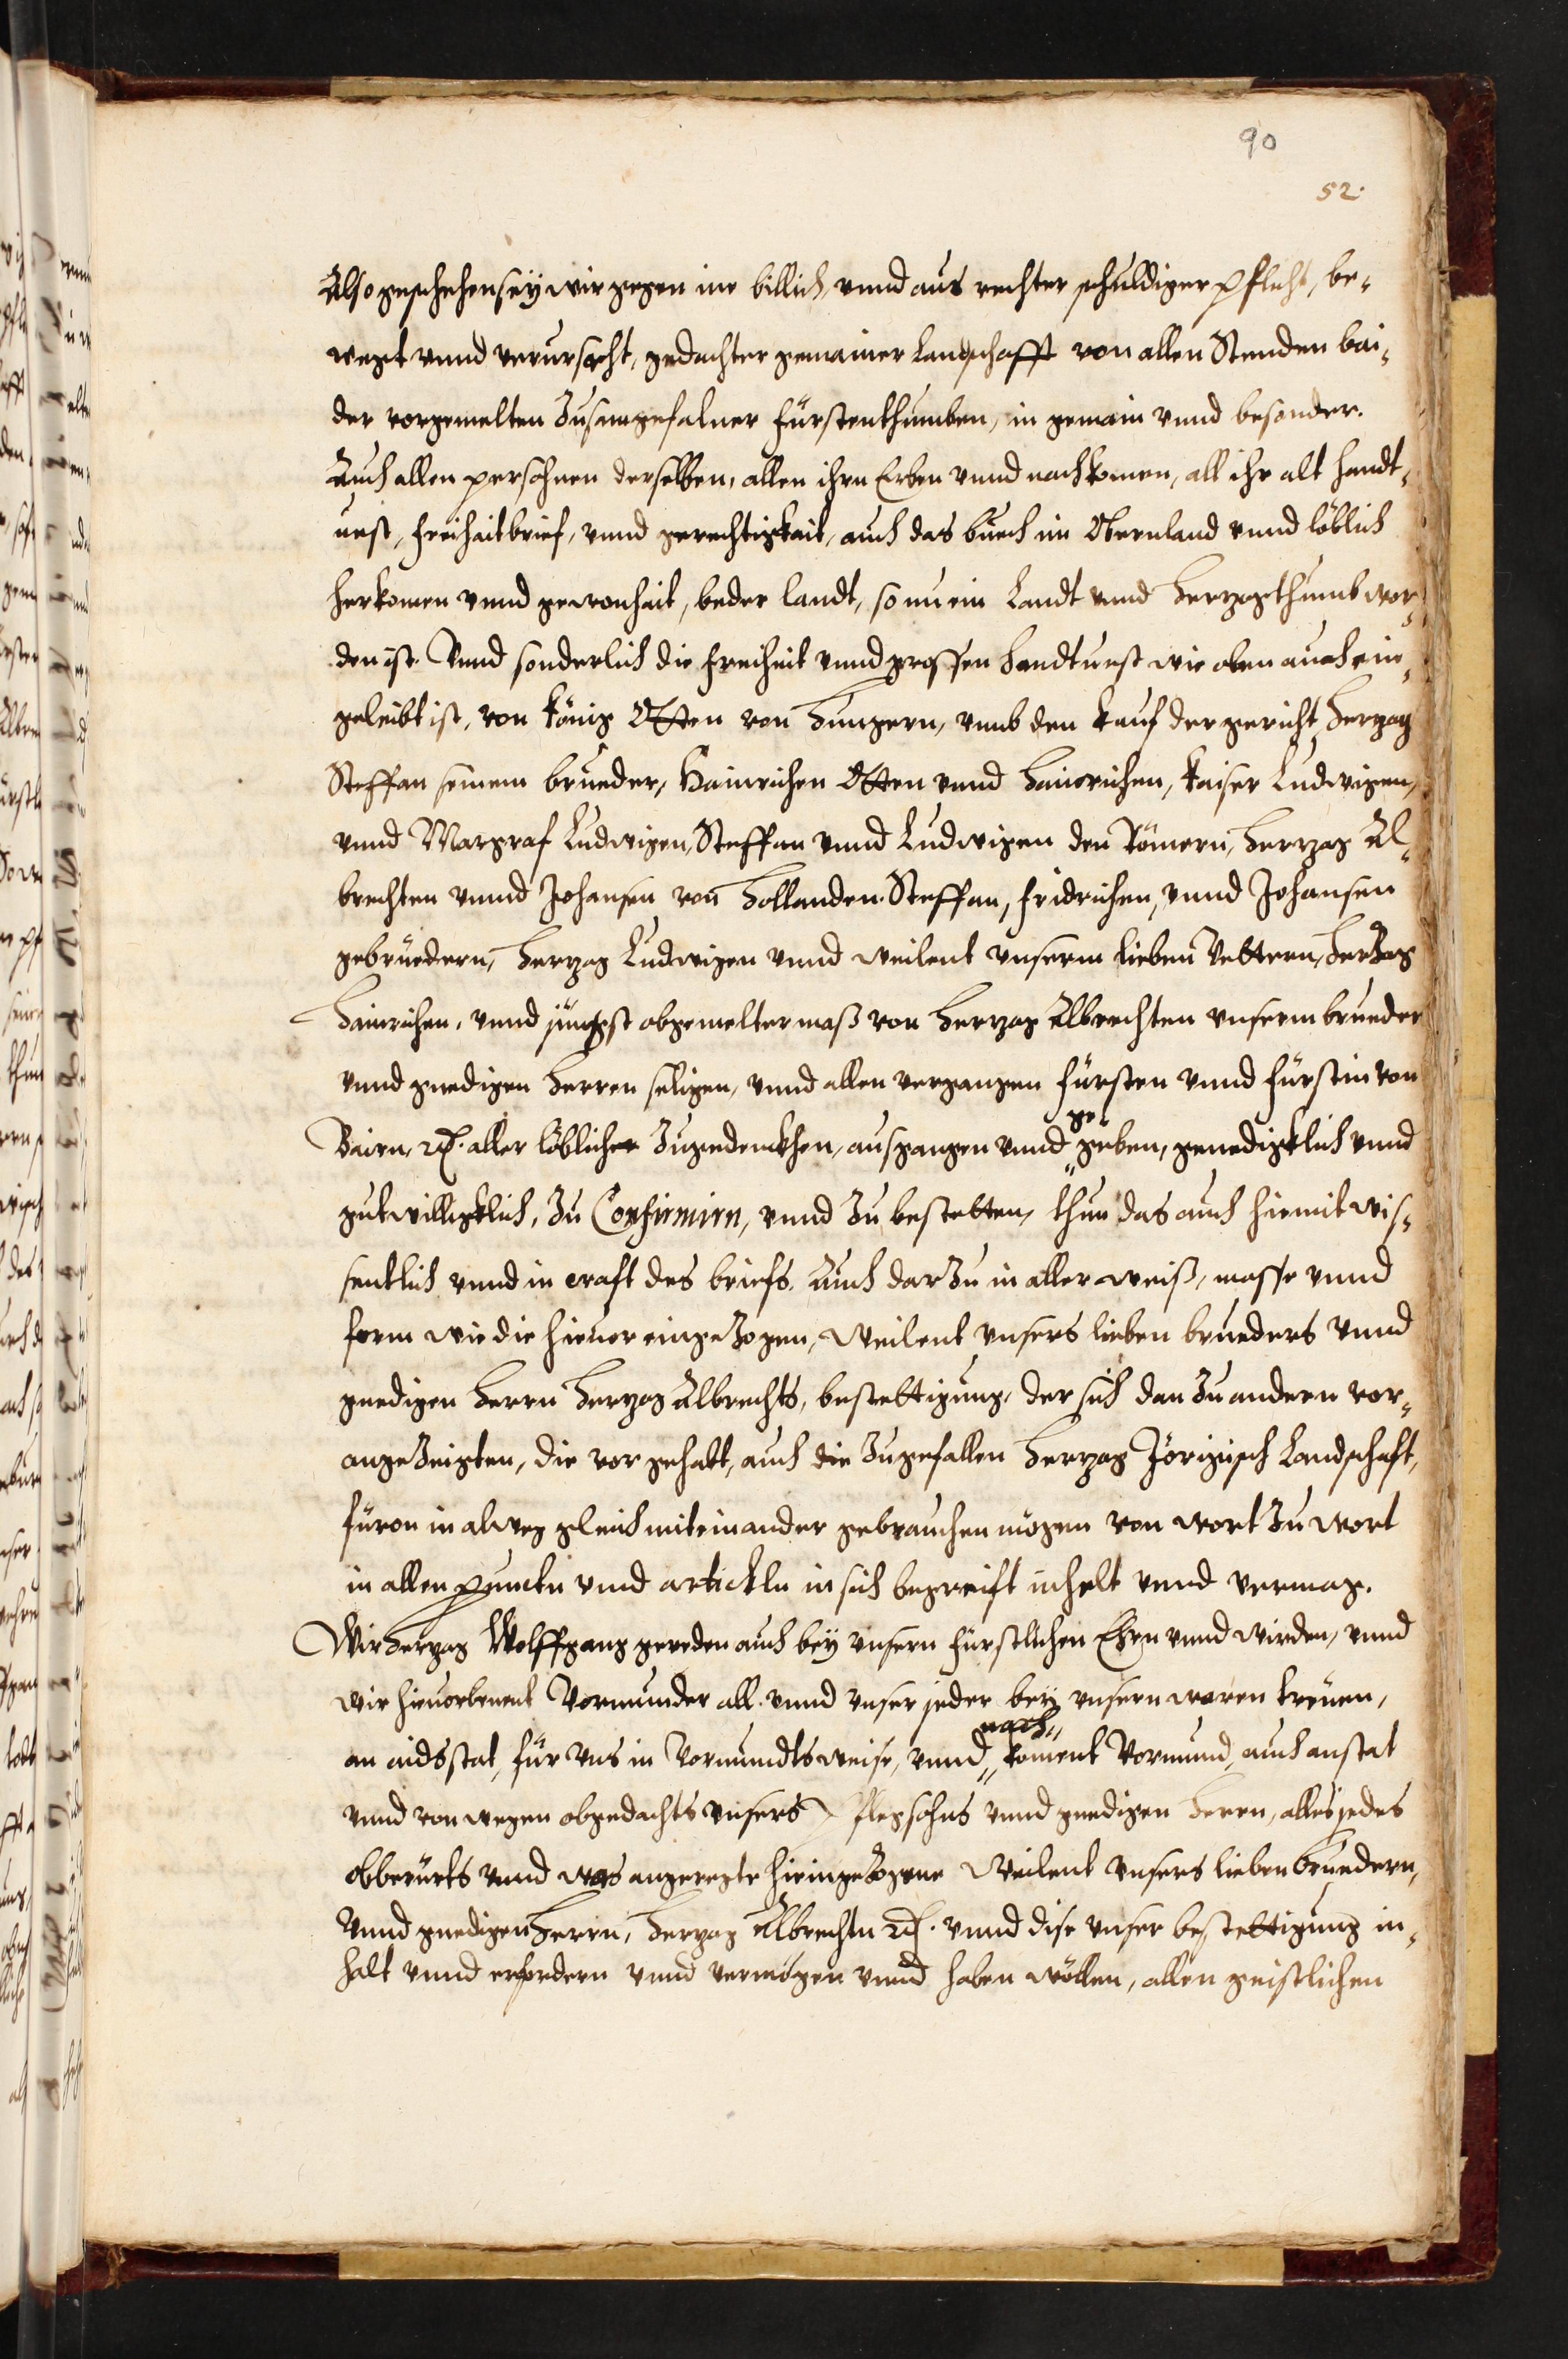 90
52.
Also geschehen seÿ wir gegen ine billich, vnnd aus rechter schuldiger pflicht, be¬
wegt vnnd verursacht, gedachter gemainer Landschafft von allen Stenden bai¬
der vorgemelten Zusamgefalner fürstenthumben, in gemain vnnd besonder.
Auch allen persohnen derselben, allen ihrn Erben vnnd nachkomen, all ihr alt handt¬
uest, freihaitbrief, vnnd gerechtigkait, auch das buech im Obernland vnnd löblich
herkomen vnnd gewonhait, beder landt, so nu ein Landt vnnd Herzogthumb wor¬
den ist. Vnnd sonderlich die freiheit vnnd grossen handtuest wie oben auch ein¬
geleibt ist, von König Otten von Hungern, vmb den kauf der gericht, Herzog
Steffan seinem brueder, Hainrichen Otten vnnd Hainrichen, kaiser Ludwigen,
vnnd Margraf Ludwigen, Steffan vnnd Ludwigen den Römern, Herzog Al¬
brechten vnnd Johansen von Hollanden. Steffan, fridrichen, vnnd Johansen
gebruedern, Herzog Ludwigen vnnd weilent vnserm lieben Vettern, HerZog
Hainrichen, vnnd jüngst obgemelter mass von Herzog Albrechten vnserm brueder
vnnd gnedigen Herren seligen, vnnd allen vergangen fürsten vnnd fürstin von
Bairn, ꝛc. aller löblicher Zugedenckhen, ausgangen vnnd geben, genedigklich vnnd
ge„
gutwilligklich, Zu Confirmirn, vnnd Zu bestetten, thun das auch hiemit wis¬
sentlich vnnd in craft des briefs. Auch darZu in aller weiß, masse vnnd
form wie die hieuor eingeZogen, weilent vnsers lieben brueders vnnd
gnedigen Herrn Herzog Albrechts, bestettigung, der sich dan Zu andern vor¬
angeZeigten, die vor gehabt, auch die Zugefallen Herzog Jörigisch Landschaft,
füron in alweg gleich miteinander gebrauchen mögen von wort Zu wort
in allen punckten vnnd artickln in sich begreift inhelt vnnd vermag.
Wir Herzog Wolffgang gereden auch beÿ vnsern fürstlichen Ehren vnnd wirden, vnnd
wir hieuorbenent Vormunder all. vnnd vnser jeder beÿ vnsern waren treuen,
an aidsstat, für vns in Vormundtsweise, vnnd „ koment Vormund, auch anstat
nach„
vnnd von wegen obgedachts vnsers Pflegsohns vnnd gnedigen Herrn, alles jedes
obberürts vnnd was angeregte hieingeZogene weilent vnsers lieben bruedern,
Vnnd gnedigen Herrn, Herzog Albrechtn ꝛc. vnnd dise vnser bestettigung in¬
halt vnnd erfordern vnnd vermögen vnnd haben wöllen, allen geistlichen